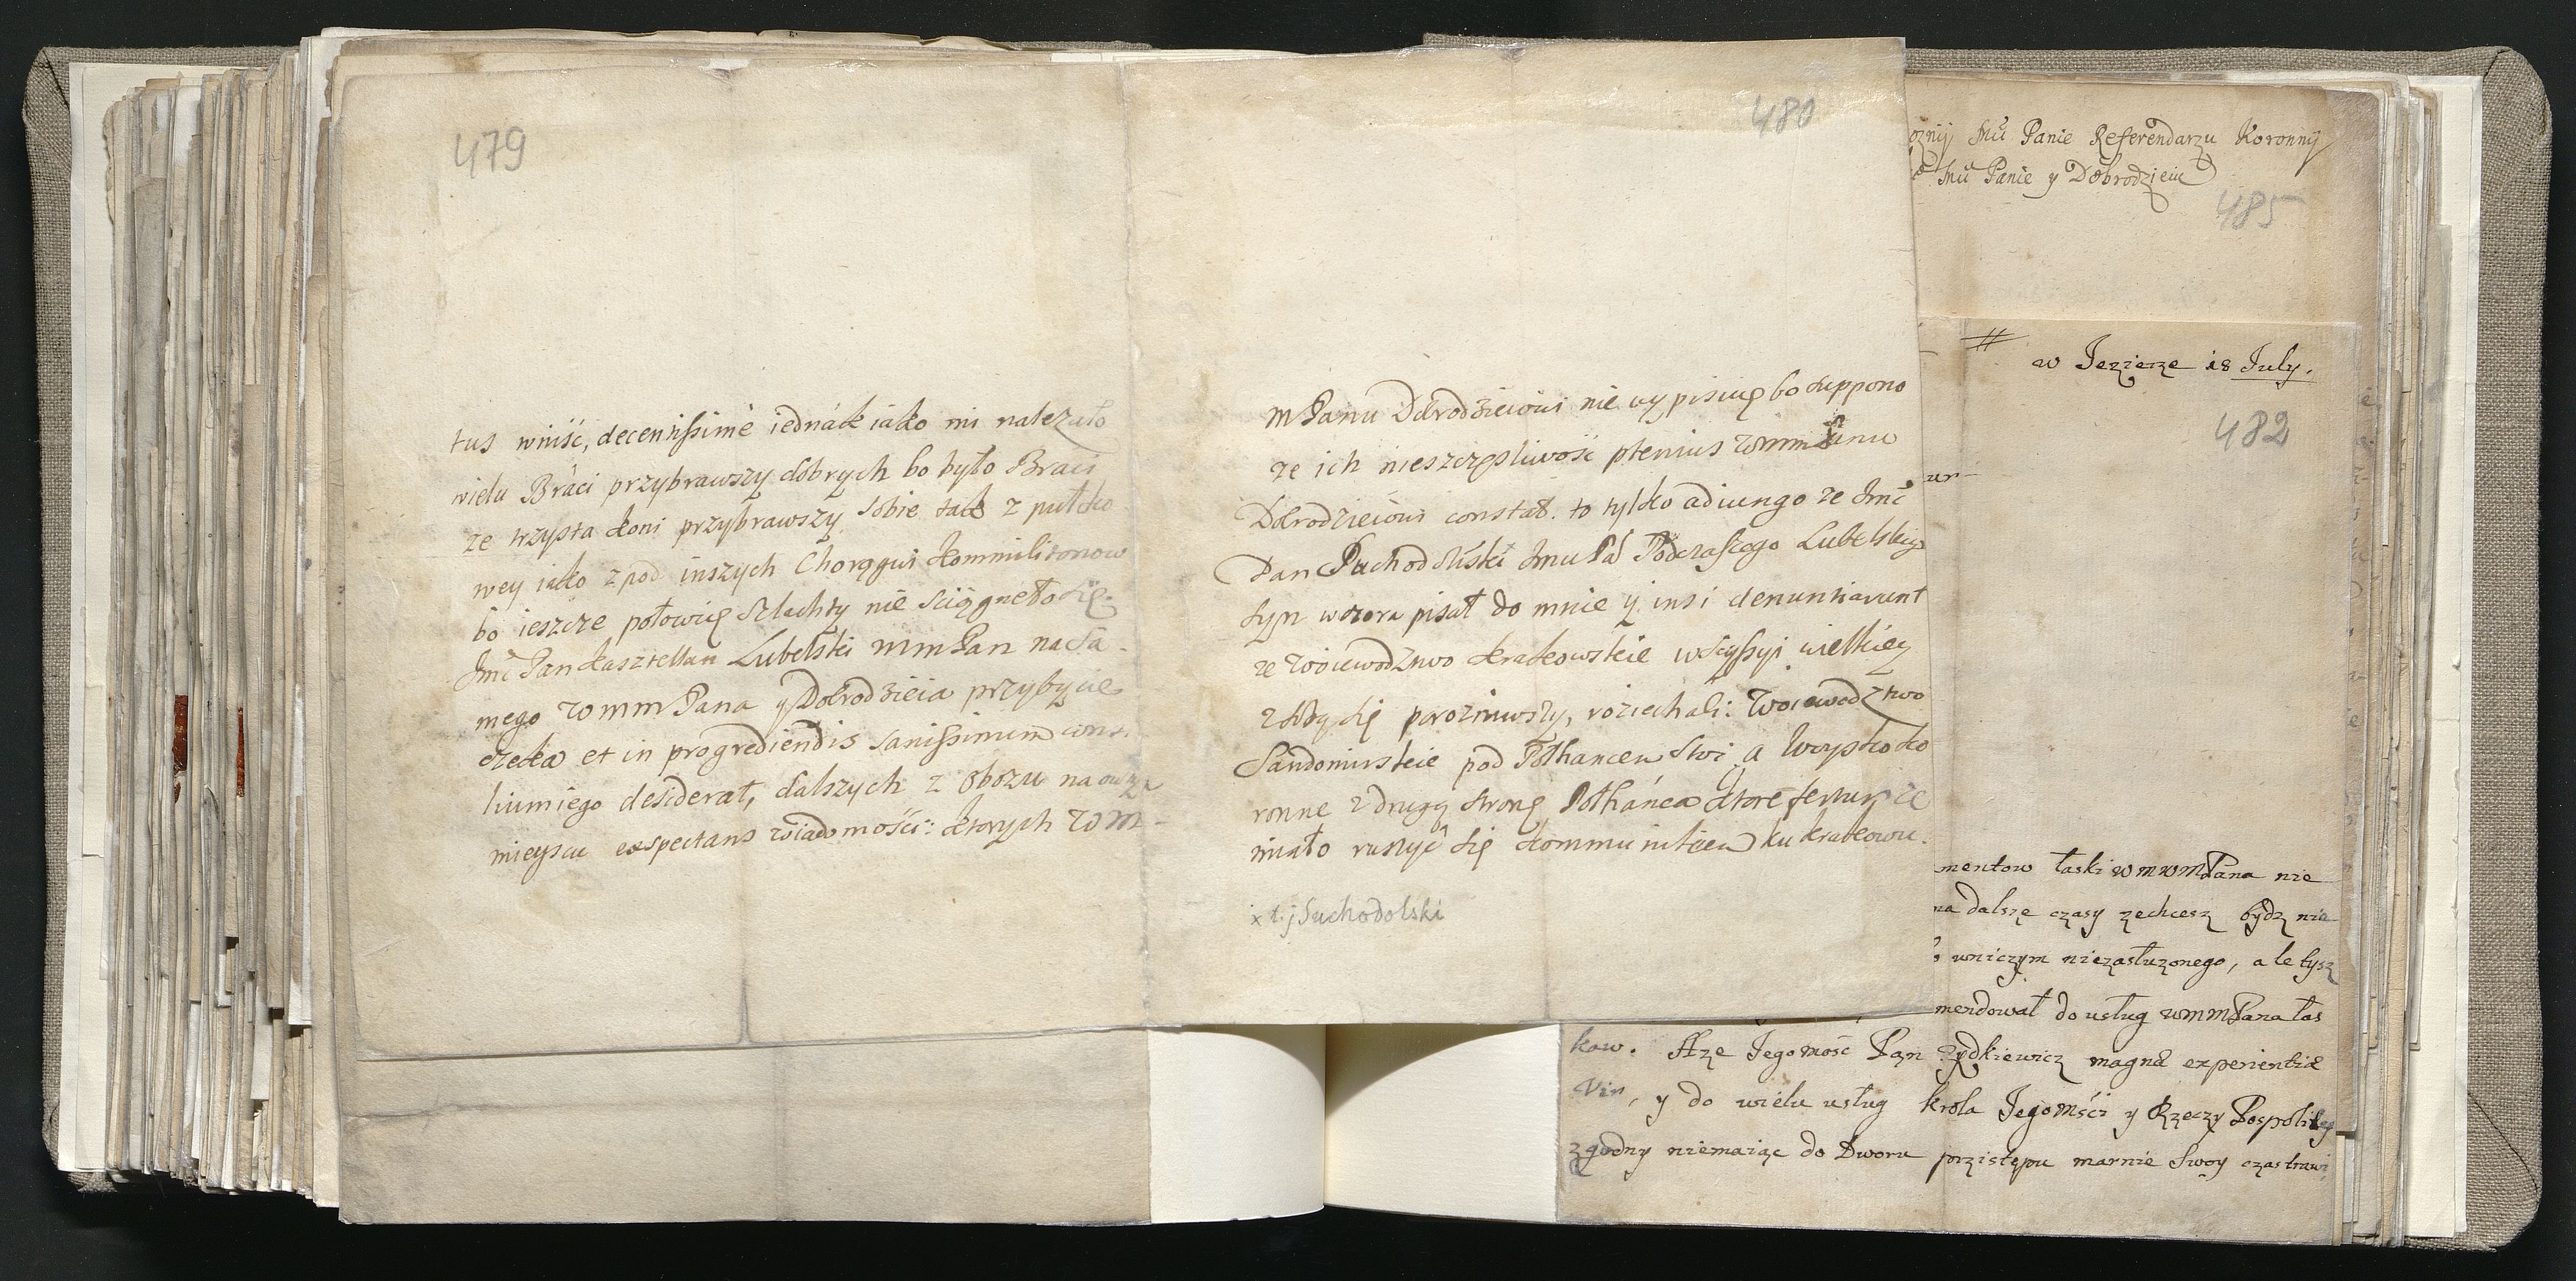 479
tus wniść, decentissimè iednák iako mi należało
wielu Bráci przybrawszy dobrych bo było Braci
ze trzysta koni przybrawszy sobie tak z pułko
wey iako z pod inszych Chorągwi kommilitonow
bo ieszcze połowię Szlachty nie sciągneło się.
Jmć Pan kasztellan Lubelski mm Pan na sa
mego WMM Pana y Dobrodzieia przybycie
czeka et in progrediendis sanissimum con
liumiego desiderat, dalszych z obozu na
mieyscu exspectans wiadomości: ktorych WM-
480
m Panu Dobrodzieiowi nie wypisuię bo suppono
ze ich nieszczęsliwość plenius WMM Panu
Dobrodzieiowi constat. to tylko adiungo ze Jmć
Pan Suchodolski Jmu Pá Podczaszego Lubelskiego
syn wczora pisał do mnie y insi denuntiarunt
ze Woiewodztwo krakowskie w scyssyi wielkiey
z sobą się porożniwszy, roziechali: Woiewodztwo
Sandomirskie pod Połhancem stoi a Woysko ko
ronne z drugą stronę Połhańca ktore fertur ze
miało ruszyć się kommunikiem ku krakowu.
x t.j Suchodolski
ożnij Mú Panie Referendarzu Koronnÿ
Mú Panie y Dobrodzieiu
485
# w Jezierze 18 July.
482
ur-
mentow łaski wmwmPana nie
na dalsze czasy zechcesz bydz nie
uniczym niezasłuzonego, ale tysz
mendował do usług wmmPana łas
kaw. Aze Jegomość Pan Zydkiewicz magna experientia
Vir, y do wielu usług krola Jegomści y Rzeczy Pospolitey
zgodny niemaiąc do Dworu przistępu marnie swoy czas trawi